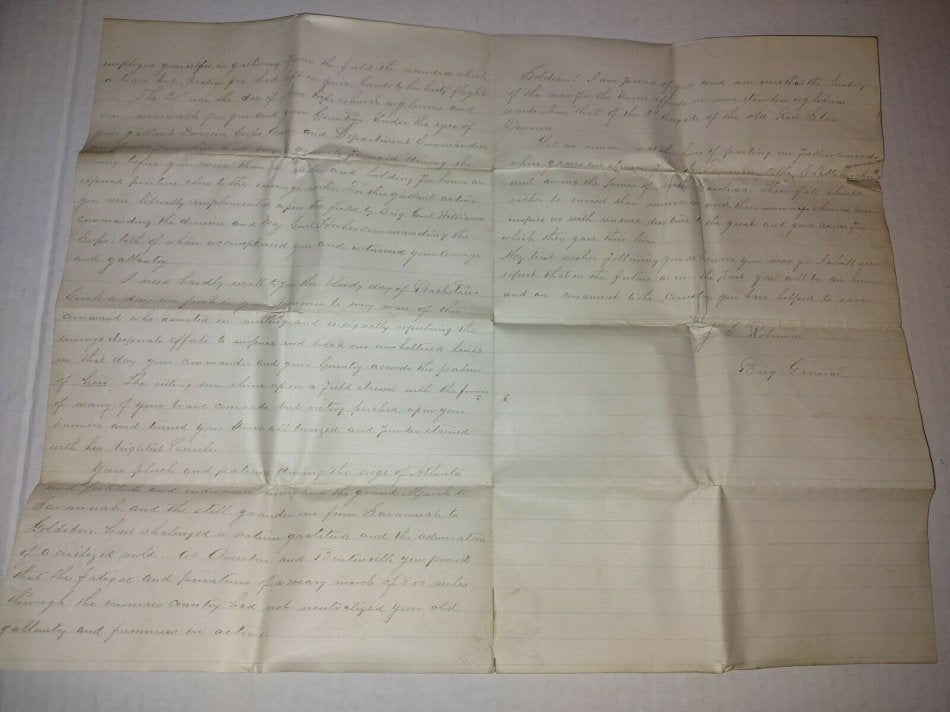 employed yourselves in gathering from the field the wounded which
a brave but beaten foe had left in your hands by his hasty flight
The 25 was the day of New Hope Church as glorious and
as memorable for you and your Country. Under the eyes of
your gallant Division Corps Army and Department Commanders
you and again forward driving the
enemy before you more than a mile and holding for hours an
exposed position close to the enemys works. For this gallant action
you were literally complimented upon the field by Brig Genl Williams
commanding the division and Maj Genl Hooker commanding the
Corps both of whom accompanied you and witnessed your courage
and gallantry.
I need hardly recall to you the bloody day of Peach Tree
Creek a day ever fresh in the memories to every man of this
command who assisted in meeting and so signally repulsing the
enemys desperate efforts to surprise and break our unsheltered lines
on that day your commander and your Country accords the palm
of hero. The setting sun shone upon a field strewn with the forms
of many of your brave comrads but victory perched upon your
banners and turned your brows all bronzed and powder stained
with her brightest laurels.
Your pluck and patience during the siege of Atlanta
and fortitude and endurance throughout the grand March to
Savannah and the still grander one from Savannah to
Goldsboro have challenged a nations gratitude and the admiration
of a civilized world. At Averasboro and Bentonville you proved
that the fatigue and privations of a weary march of 500 miles
through the enemies country had not neutralized your old
gallantry and firmness in action.
Soldiers! I am proud of you and am sure that the history
of the war for the Union affords no more stainless or glorious
records than that of the 3d Brigade of the old Red Star
Division
Let us remember in this hour of parting our fallen comrads
whose graves are the Chattahoochee
and among the pines of North Carolina. Their fate should
rather be envied than mourned and their memory should ever
inspire us with renewed devotion to the great and good cause for
which they gave their lives
My best wishes following you wherever you may go I shall ever
expect that in the future as in the past you will be an honor
and an ornament to the country you have helped to save
J S Robinson
Brig General